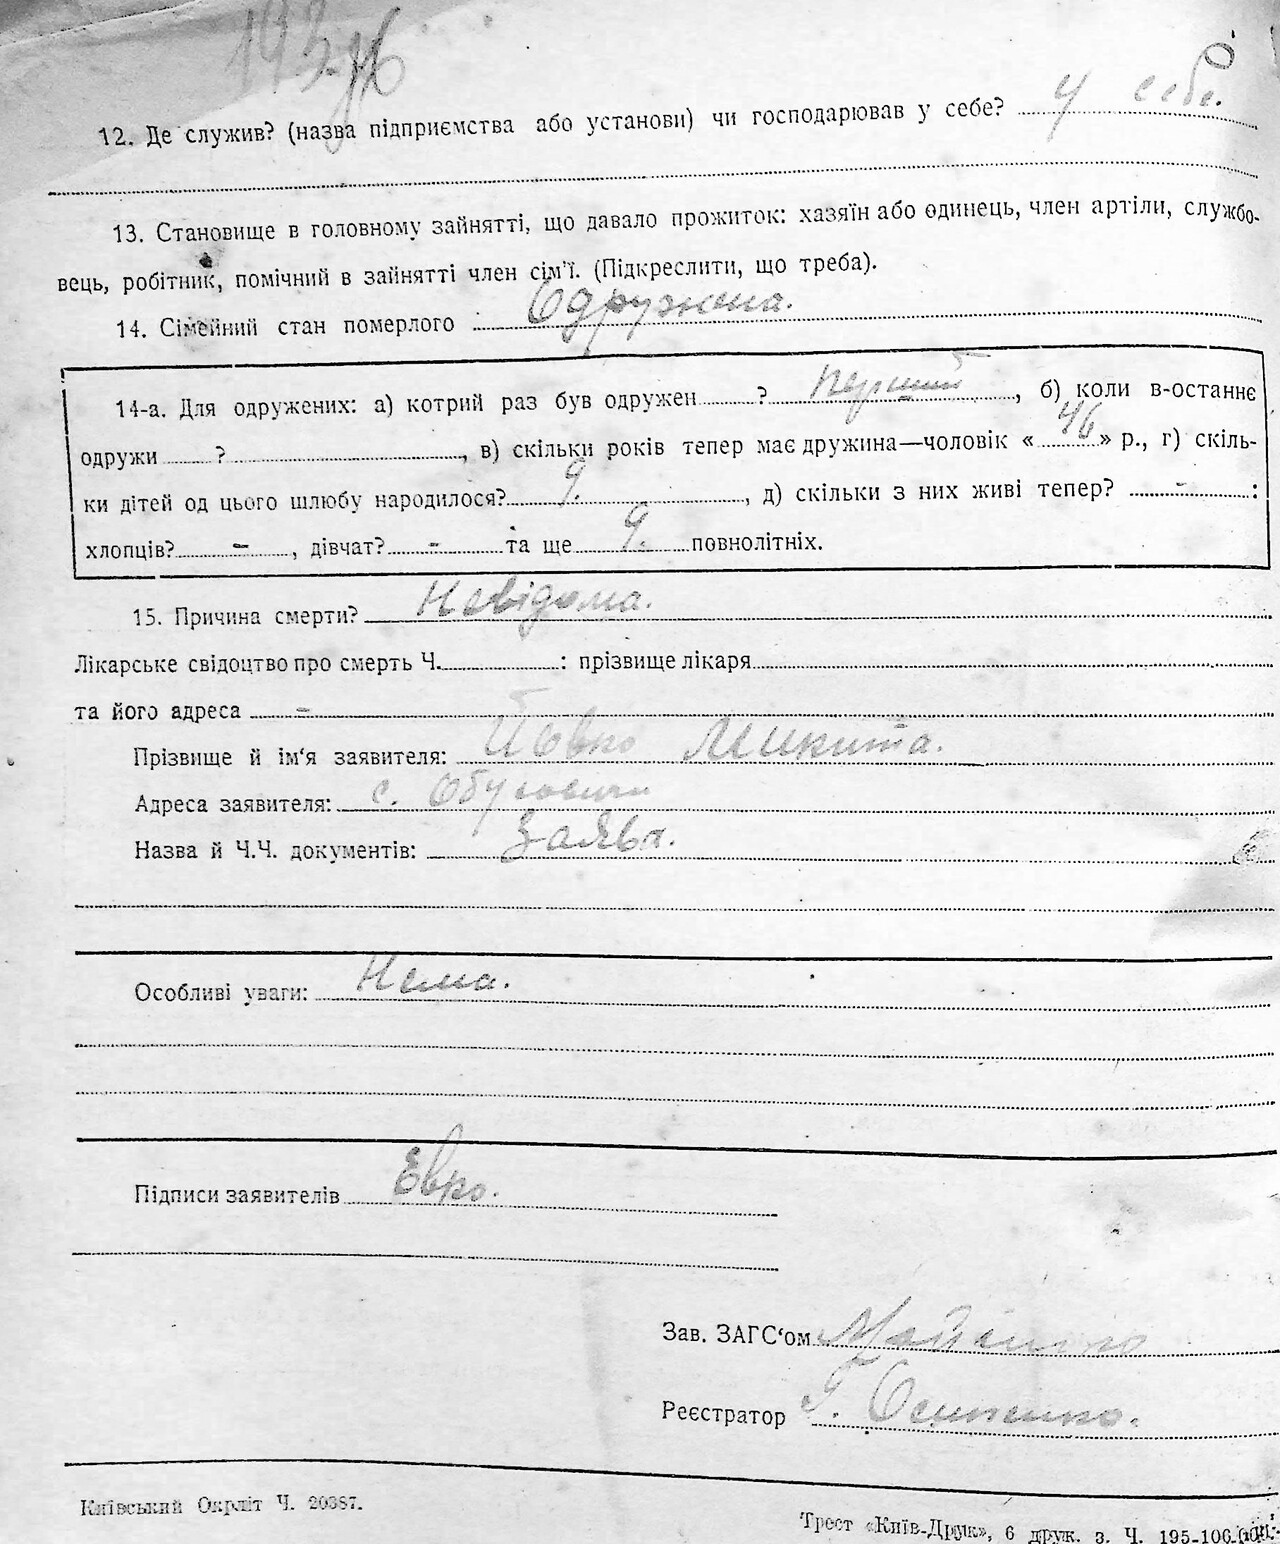 12. Де служив? (назва підприємства або установи) чи господарював у себе? у себе.
13. Становище в головному зайнятті, що давало прожиток: хазяїн або одинець, член артіли, службо-
вець, робітник, помічний в зайнятті член сім'ї. (Підкреслити, що треба).
14. Сімейний стан померлого Одружена.
14-а. Для одружених: а) котрий раз був одружен ? перший, б) коли в-останнє
одружи ? , в) скільки років тепер має дружина—чоловік «46» р., г) скіль-
ки дітей од цього шлюбу народилося? 9. , д) скільки з них живі тепер? - :
хлопців? - , дівчат? - та ще 9. повнолітніх.
15. Причина смерти? Невідома.
Лікарське свідоцтво про смерть Ч. : прізвище лікаря
та його адреса -
Прізвище й ім'я заявителя: Микита.
Адреса заявителя: с. Обуховичи
Назва й Ч.Ч. документів: Заява.
Особливі уваги: Нема.
Підписи заявителів
Зав. ЗАГС'ом
Реєстратор Г. Осипенко.
Київський Окрліт Ч. 20387.
Трест «Київ-Друк», 6 друк. з. Ч. 195-106